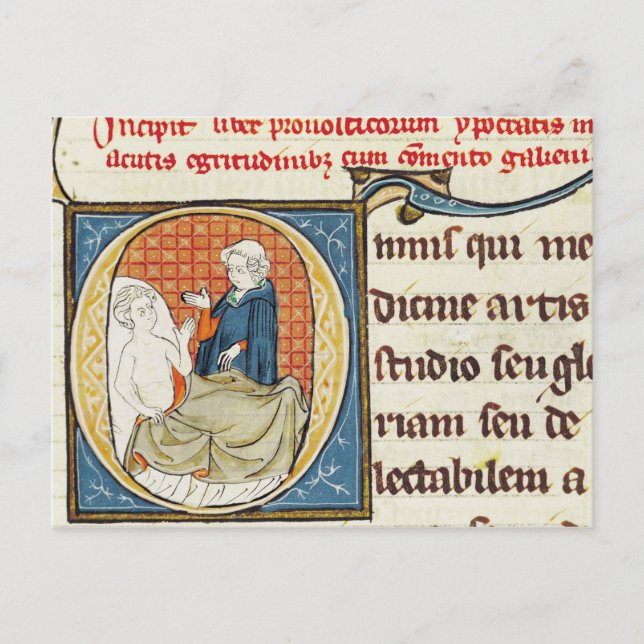 Incipit liber pronosticorum ypocratis in
acutis egritudinibz cum cōmento galieni
Omnis qui me
dicine artis
studio seu glo
riam seu de
lectabilem a